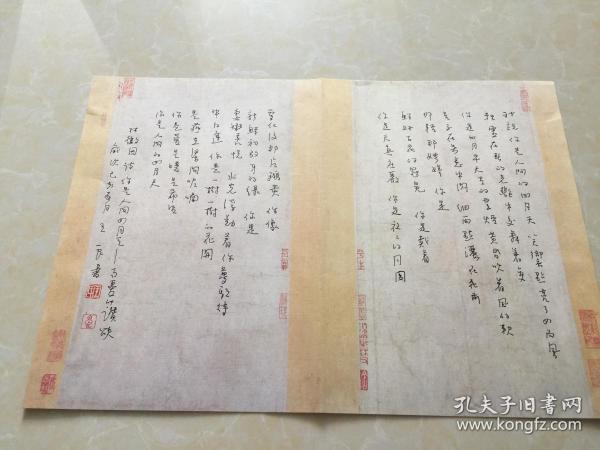 我说你是人间的四月天 笑响点亮了四面风
轻灵在春的光艳中交舞着变
你是四月早天里的云烟黄昏吹着风的软
星子在无意中闪 细雨点洒在花前
那轻那娉婷 你是
鲜妍百花的冠冕 你是戴着
你是天真庄严 你是夜夜的月圆
雪化后那片鹅黄 你像
新鲜初放芽的绿 你是
柔嫩喜悦 水光浮动着你梦期待
中白莲 你是一树一树的花开
是燕在梁间呢喃
你是爱是暖是希望
你是人间的四月天
林徽因诗你是人间四月天一句爱的赞颂
书
孔夫子旧书网
www.kongfz.com